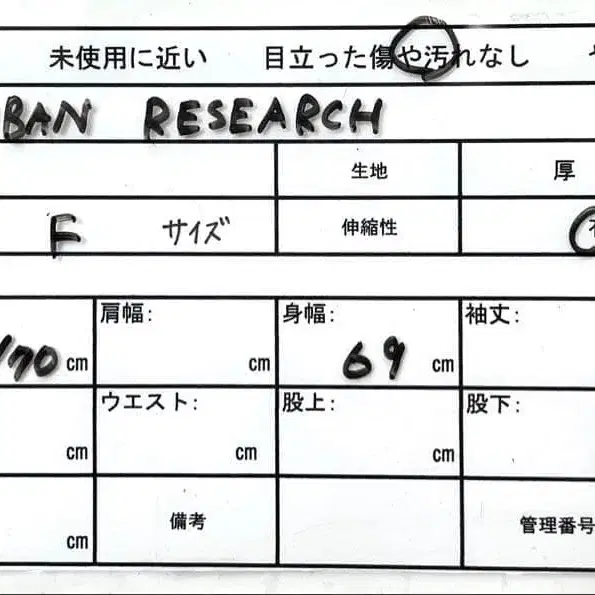 未使用に近い 目立った傷や汚れなし
BAN RESEARCH
生地 厚
F サイズ 伸縮性
肩幅: 身幅: 袖丈:
170 cm cm 69 cm
ウエスト: 股上: 股下:
cm cm cm
備考 管理番号
cm